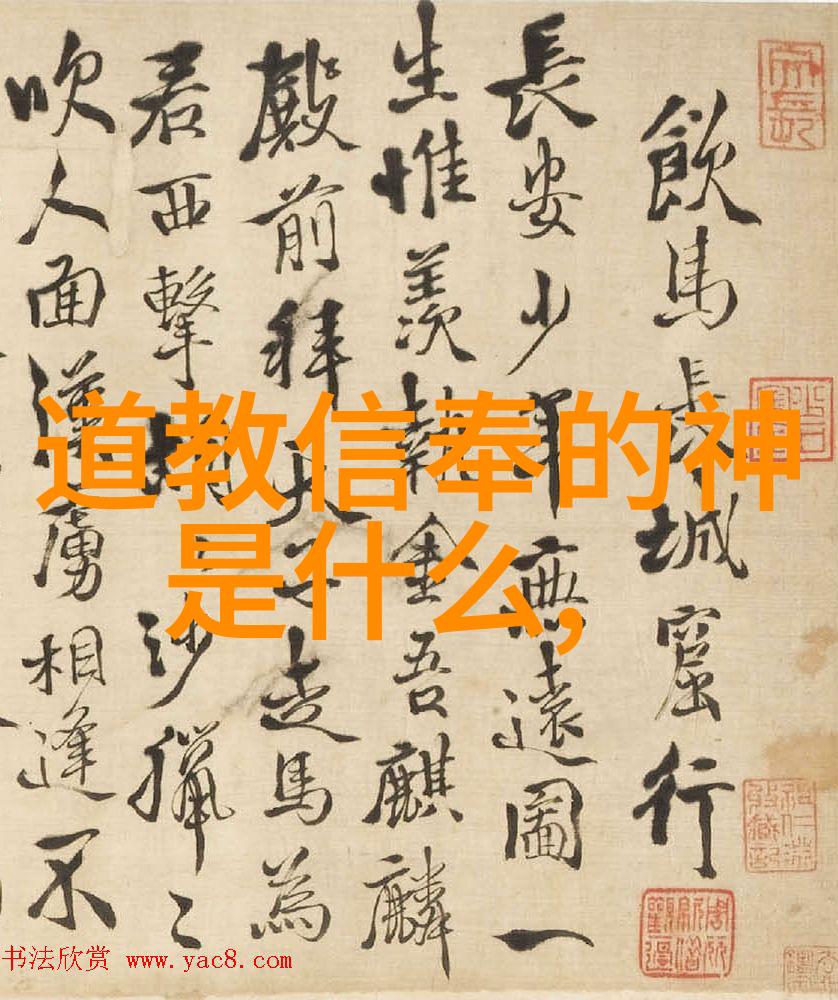 道教信奉的神
是什么,
飲馬長城窟行
長安少年無遠圖一
生惟羨執金吾麒麟
殿前拜天子走馬為
君西擊胡〻沙獵〻
吹人面漢虜相逢不
书法欣赏 www.yac8.com